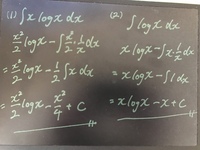 (1) ∫x logx dx
x²/2 logx - ∫x²/2 · 1/x dx
= x²/2 logx - 1/2 ∫x dx
= x²/2 logx - x²/4 + C
(2)
∫logx dx
x logx - ∫x · 1/x dx
= x logx - ∫1 dx
= x logx - x + C